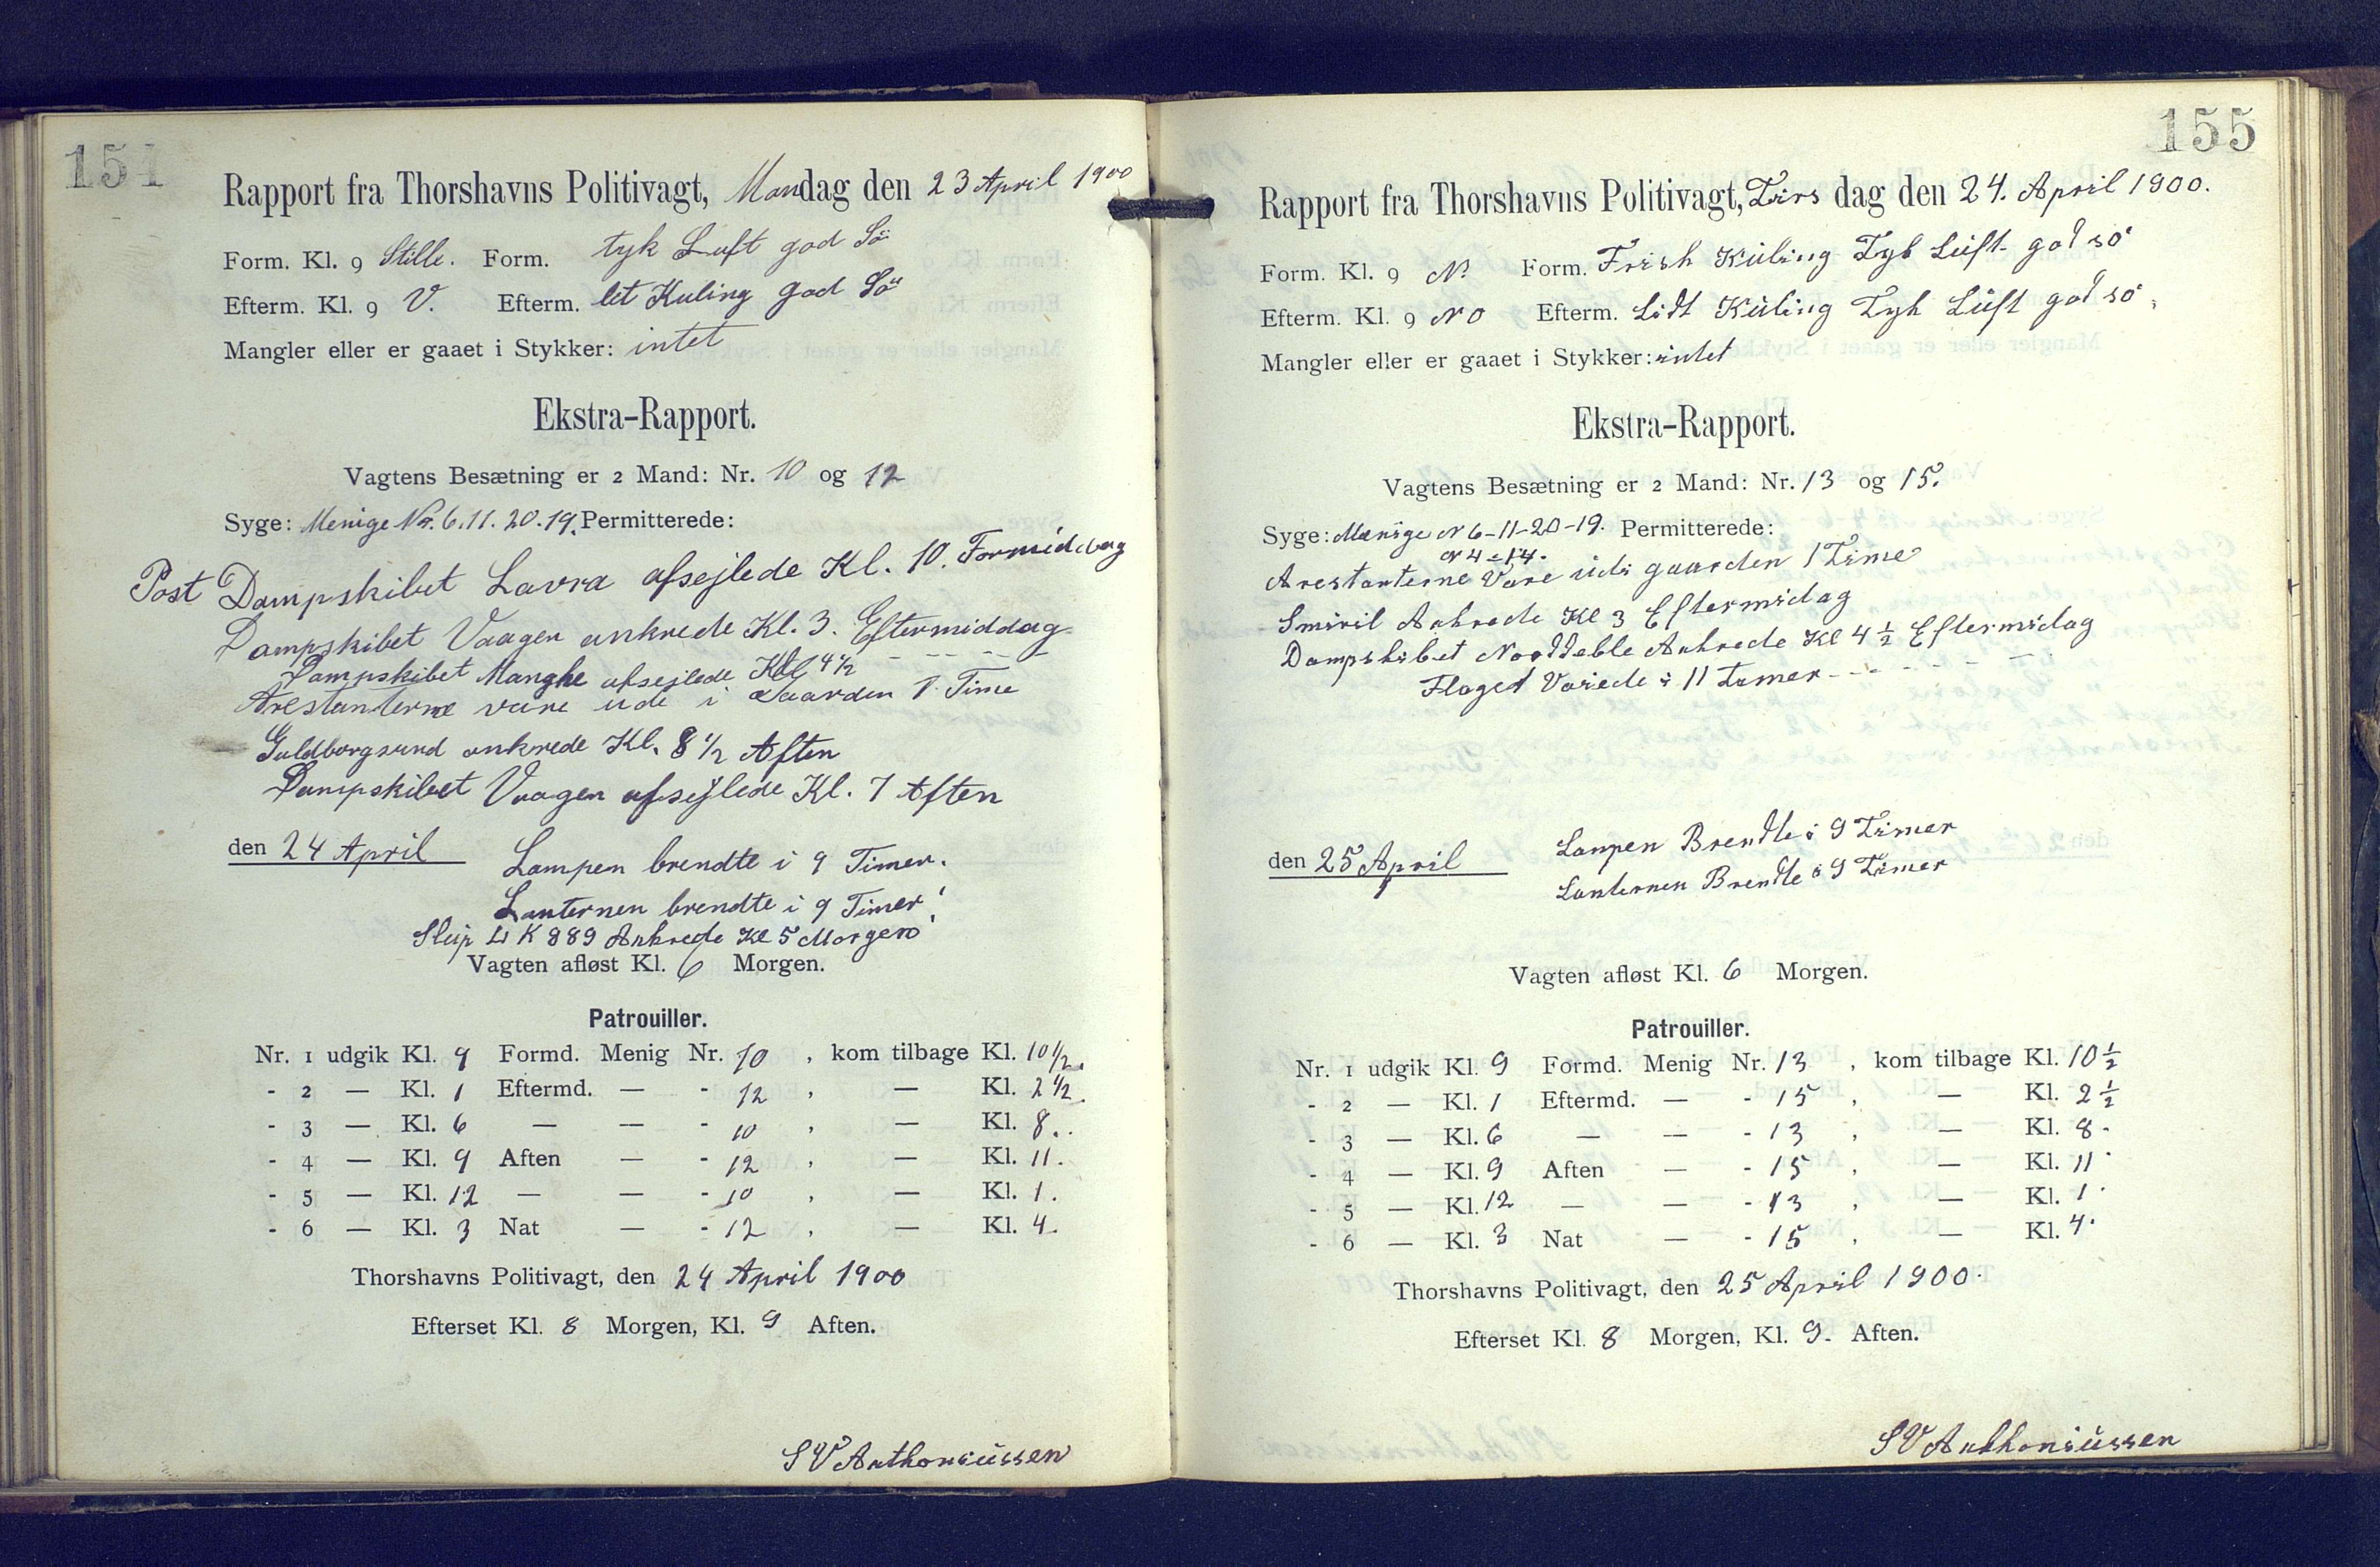 154
Rapport fra Thorshavns Politivagt, Mandag den 23 April 1900
Form. Kl. 9 Stille. Form. tyk Luft god Sö
Efterm. Kl. 9 V. Efterm. let Kuling god Sö
Mangler eller er gaaet i Stykker: intet
Ekstra-Rapport.
Vagtens Besætning er 2 Mand: Nr. 10 og 12
Syge: Menige Nr. 6.11.20.19. Permitterede:
Post Dampskibet Lavra afsejlede Kl. 10. Formiddag
Dampskibet Vaagen ankrede Kl. 3. Eftermiddag
Dampskibet Manghe afsejlede Kl 4½ - - - - -
Arestanterne vare ude i Gaarden 1 Time
Guldborgsund ankrede Kl. 8½ Aften
Dampskibet Vaagen afsejlede Kl. 7 Aften
den 24 April
Lampen brendte i 9 Timer.
Lanternen brendte i 9 Timer!
Slup LK 889 Ankrede Kl 5 Morgen
Vagten afløst Kl. 6 Morgen.
Patrouiller.
Nr. 1 udgik Kl. 9 Formd. Menig Nr. 10, kom tilbage Kl. 10½.
- 2 — Kl. 1 Eftermd. — - 12, — Kl. 2½.
- 3 — Kl. 6 — — - 10, — Kl. 8.
- 4 — Kl. 9 Aften — - 12, — Kl. 11.
- 5 — Kl. 12 — — - 10, — Kl. 1.
- 6 — Kl. 3 Nat — - 12, — Kl. 4.
Thorshavns Politivagt, den 24 April 1900
Efterset Kl. 8 Morgen, Kl. 9 Aften.
SV Anthoniussen
155
Rapport fra Thorshavns Politivagt, Tirs dag den 24. April 1900.
Form. Kl. 9 N. Form. Frish Küling Tyk Lüft god sö
Efterm. Kl. 9 NO Efterm. Lidt Küling Tyk Lüft god sö
Mangler eller er gaaet i Stykker: intet
Ekstra-Rapport.
Vagtens Besætning er 2 Mand: Nr. 13 og 15.
Syge: Menige N 6-11-20-19. Permitterede:
N 4 = 14.
Arestanterne Vare üdi gaarden 1 Time
Smiril Ankrede Kl 3 Eftermidag
Dampskibet Norddeble Ankrede Kl 4½ Eftermidag
Flaget Vaiede i 11 Timer - - - - - -
den 25 April
Lampen Brendte i 9 Timer
Lanternen Brendte i 9 Timer
Vagten afløst Kl. 6 Morgen.
Patrouiller.
Nr. 1 udgik Kl. 9 Formd. Menig Nr. 13, kom tilbage Kl. 10½
- 2 — Kl. 1 Eftermd. — - 15, — Kl. 2½
- 3 — Kl. 6 — — - 13, — Kl. 8-
- 4 — Kl. 9 Aften — - 15, — Kl. 11.
- 5 — Kl. 12 — — - 13, — Kl. 1.
- 6 — Kl. 3 Nat — - 15, — Kl. 4.
Thorshavns Politivagt, den 25 April 1900.
Efterset Kl. 8 Morgen, Kl. 9- Aften.
SV Anthoniüssen